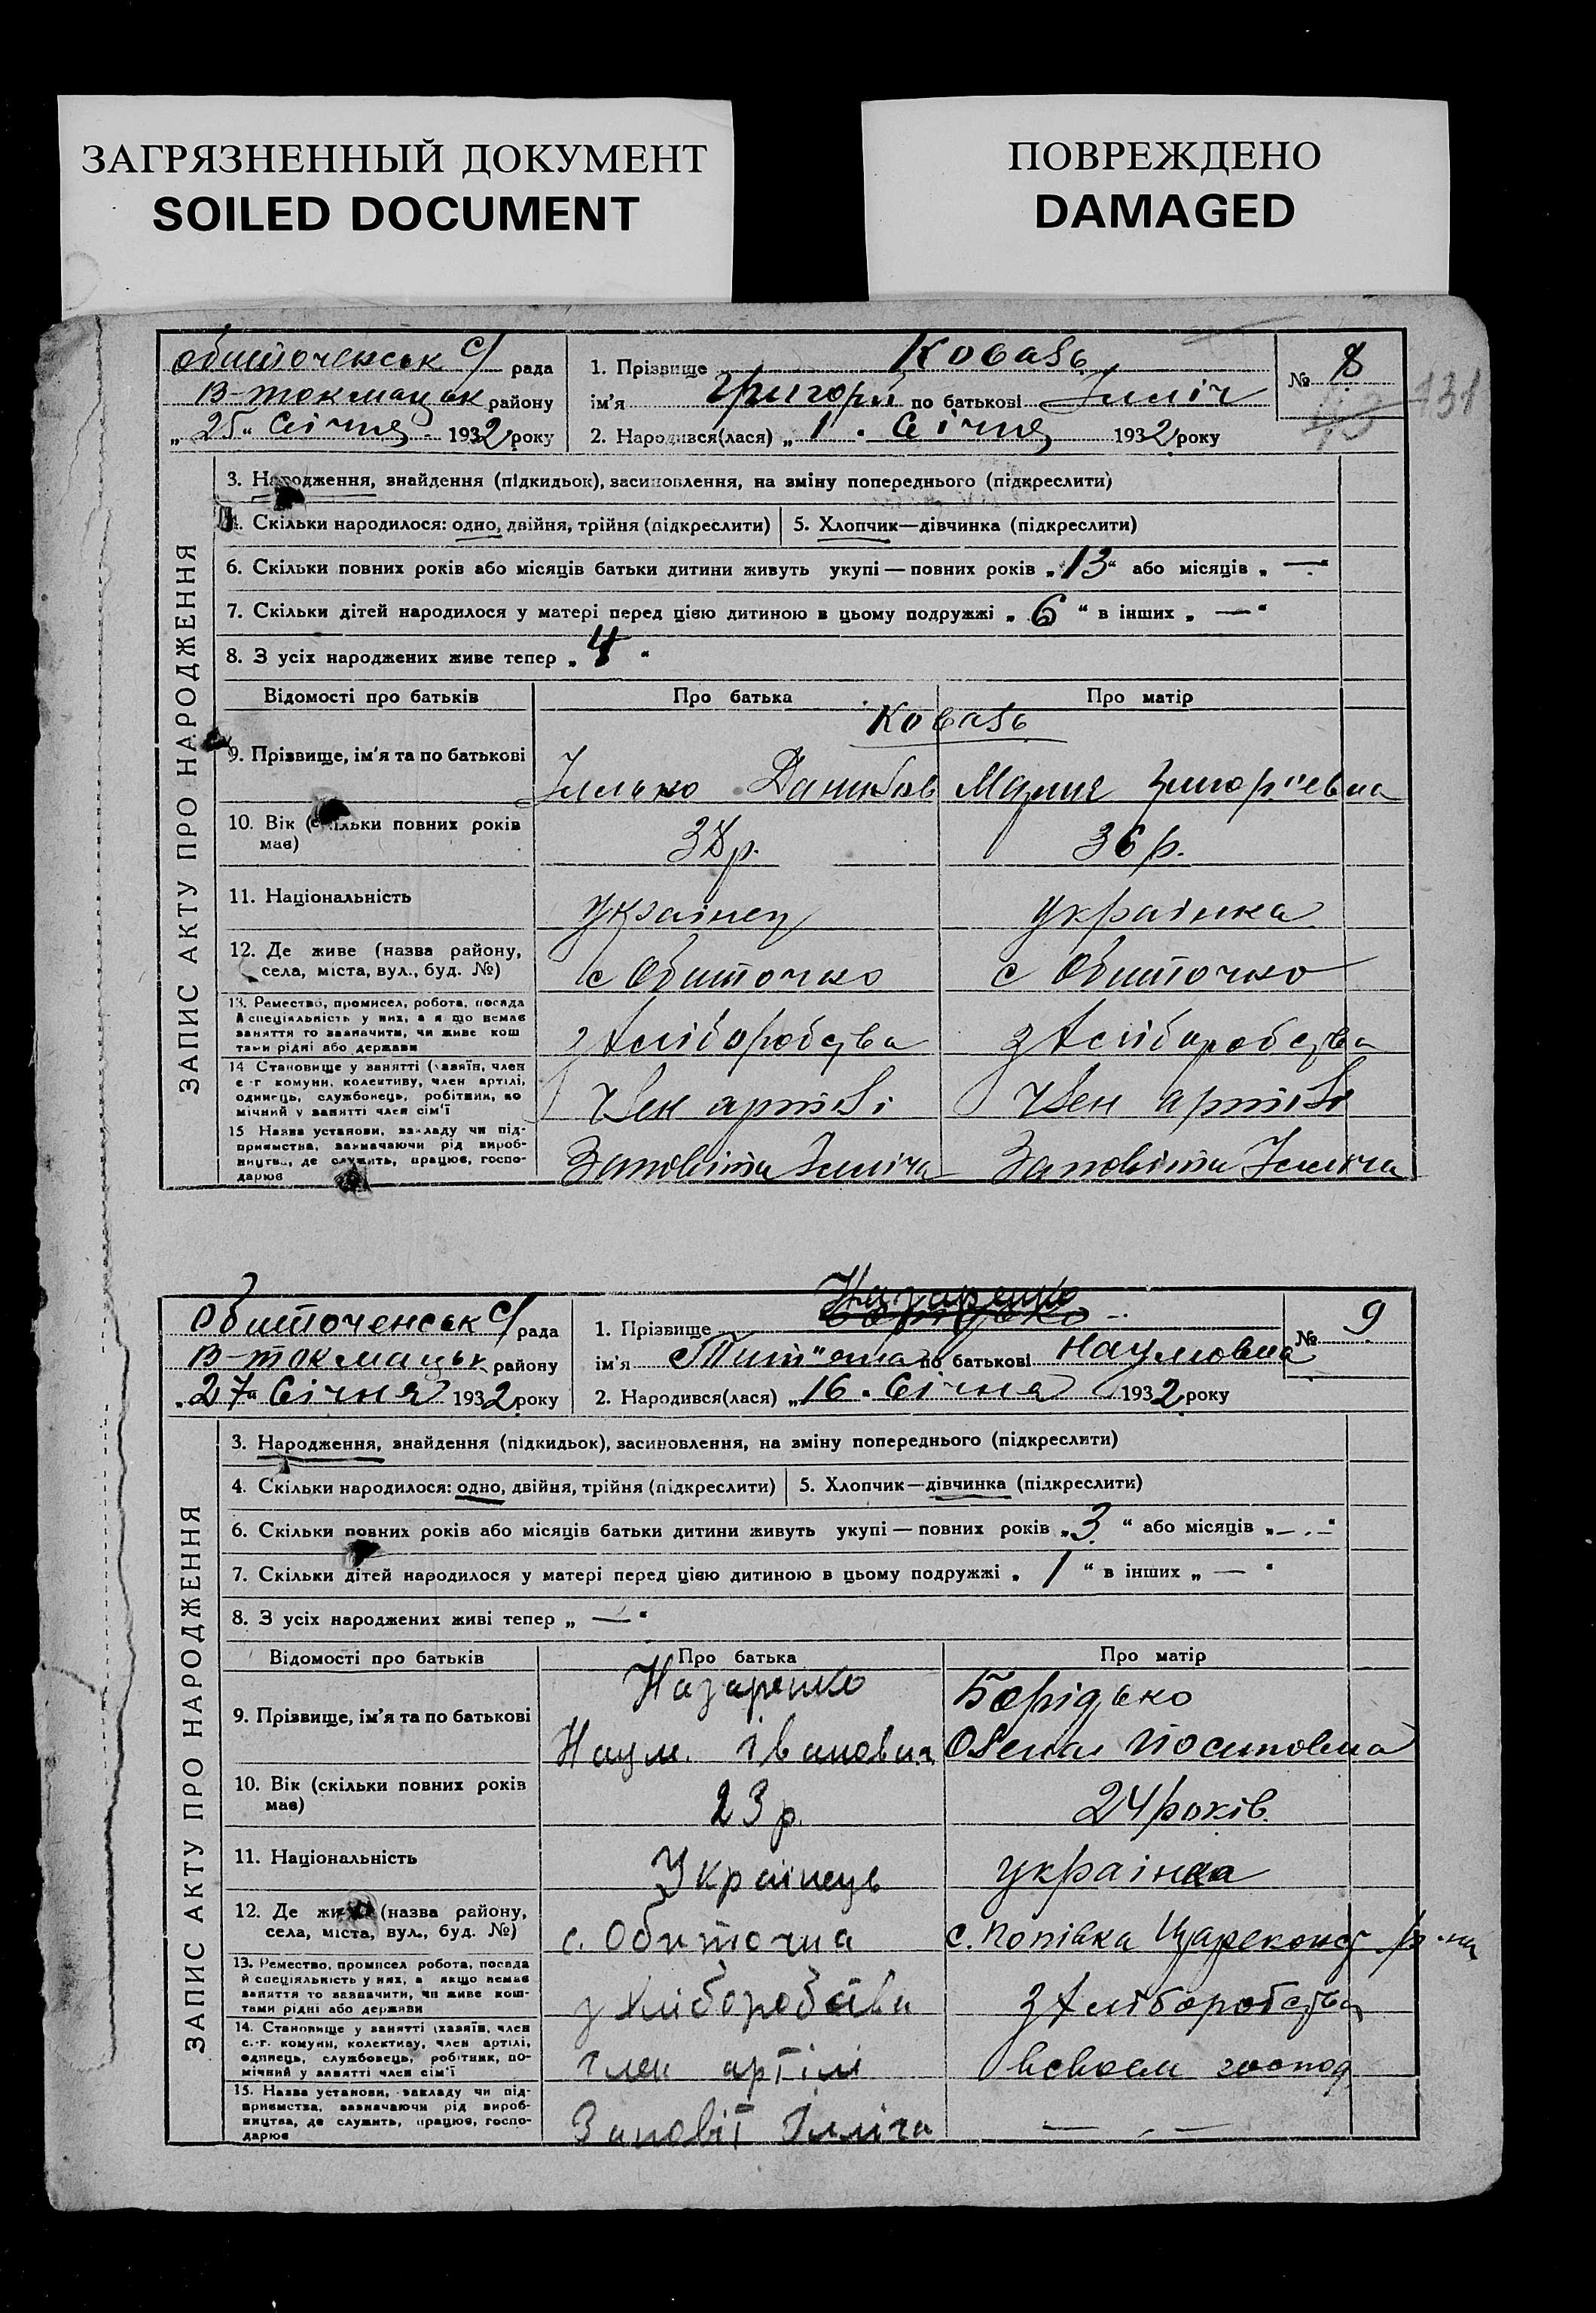 ЗАГРЯЗНЕННЫЙ ДОКУМЕНТ
SOILED DOCUMENT
ПОВРЕЖДЕНО
DAMAGED
Обиточенськ с/ рада
В-токмацьк району
„25“ Січня 1932 року
1. Прізвище Коваль
ім'я Григорій по батькові Ілліч
2. Народився(лася) „1“ Січня 1932 року
№ 8
131
ЗАПИС АКТУ ПРО НАРОДЖЕННЯ
3. Народження, знайдення (підкидьок), засиновлення, на зміну попереднього (підкреслити)
4. Скільки народилося: одно, двійня, трійня (підкреслити) 5. Хлопчик—дівчинка (підкреслити)
6. Скільки повних років або місяців батьки дитини живуть укупі — повних років „13“ або місяців „—“
7. Скільки дітей народилося у матері перед цією дитиною в цьому подружжі „6“ в інших „—“
8. З усіх народжених живе тепер „4“
Відомості про батьків Про батька Про матір
Коваль
9. Прізвище, ім'я та по батькові
Ілько Данилов Мария Григоріевна
10. Вік (скільки повних років має) 38 р. 36 р.
11. Національність українец українка
12. Де живе (назва району, села, міста, вул., буд. №) с Обиточно с Обиточно
13. Ремество, промисел, робота, посада й спеціяльність у них, а якщо немає заняття то зазначити, чи живе коштами рідні або держави
з хліборобства з хліборобства
14 Становище у занятті (хазяїн, член с.-г комуни, колективу, член артілі, одинець, службовець, робітник, помічний у занятті член сім'ї
Член артілі Член артілі
15 Назва установи, закладу чи підприємства, зазначаючи рід виробництва, де служить, працює, господарює
Заповіта Ілліча Заповіта Ілліча
Обиточенськ с/ рада
В-токмацьк району
„27“ Січня 1932 року
Назаренко
1. Прізвище
ім'я по батькові Наумовна
2. Народився(лася) „16“ Січня 1932 року
№ 9
ЗАПИС АКТУ ПРО НАРОДЖЕННЯ
3. Народження, знайдення (підкидьок), засиновлення, на зміну попереднього (підкреслити)
4. Скільки народилося: одно, двійня, трійня (підкреслити) 5. Хлопчик—дівчинка (підкреслити)
6. Скільки повних років або місяців батьки дитини живуть укупі — повних років „3“ або місяців „—“
7. Скільки дітей народилося у матері перед цією дитиною в цьому подружжі „1“ в інших „—“
8. З усіх народжених живі тепер „—“
Відомості про батьків Про батька Про матір
Назаренко Борідько
9. Прізвище, ім'я та по батькові
Наум. Іванович Олена Йосиповна
10. Вік (скільки повних років має) 23 р. 24 років.
11. Національність Українець українка
12. Де живе (назва району, села, міста, вул., буд. №) с. Обиточна с. Попівка Цареконст. р-на
13. Ремество, промисел робота, посада й спеціяльність у них, а якщо немає заняття то зазначити, чи живе коштами рідні або держави
з хліборобства з хліборобства
14. Становище у занятті (хазяїн, член с.-г. комуни, колективу, член артілі, одинець, службовець, робітник, помічний у занятті член сім'ї
член артілі в своєм господ.
15. Назва установи, закладу чи підприємства, зазначаючи рід виробництва, де служить, працює, господарює
Заповіт Ілліча — . —